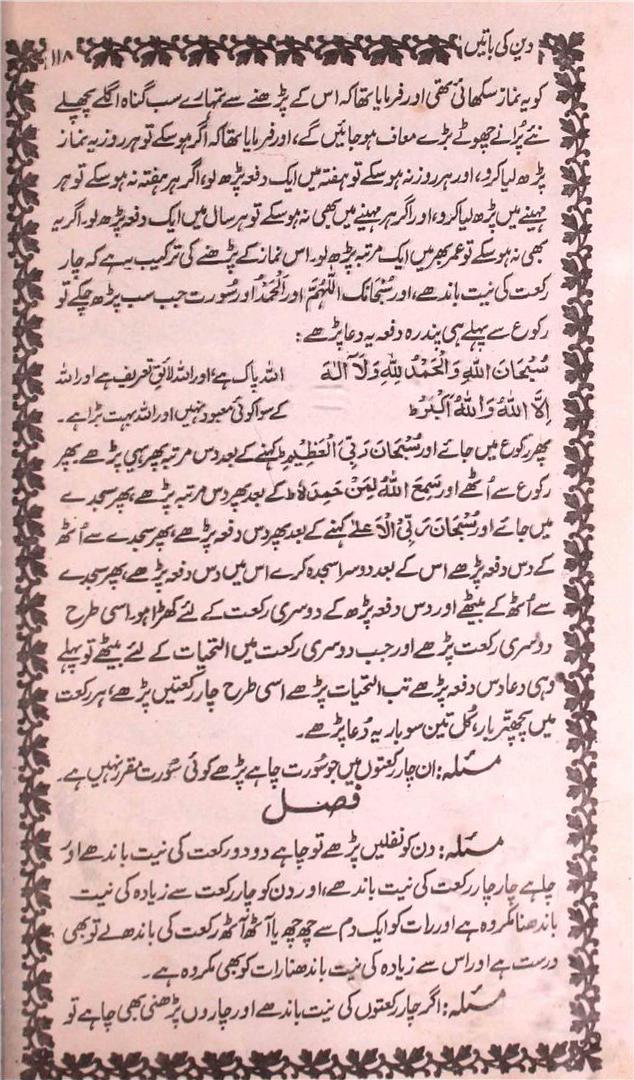 دین کی باتیں ۱۱۸
کو یہ نماز سکھائی تھی اور فرمایا تھا کہ اس کے پڑھنے سے تمہارے سب گناہ اگلے پچھلے
نئے پرانے چھوٹے بڑے معاف ہو جائیں گے، اور فرمایا تھا کہ اگر ہو سکے تو ہر روز یہ نماز
پڑھ لیا کرو، اور ہر روز نہ ہو سکے تو ہفتہ میں ایک دفعہ پڑھ لو، اگر ہر ہفتہ نہ ہو سکے تو ہر
مہینے میں پڑھ لیا کرو، اور اگر ہر مہینے میں بھی نہ ہو سکے تو ہر سال میں ایک دفعہ پڑھ لو۔ اگر یہ
بھی نہ ہو سکے تو عمر بھر میں ایک مرتبہ پڑھ لو۔ اس نماز کے پڑھنے کی ترکیب یہ ہے کہ چار
رکعت کی نیت باندھے، اور سُبْحَانَكَ اللّٰهُمَّ اور اَلْحَمْدُ اور سُورت جب سب پڑھ چکے تو
رکوع سے پہلے ہی پندرہ دفعہ یہ دعا پڑھے:
سُبْحَانَ اللهِ وَالْحَمْدُ لِلّٰهِ وَلَآ اِلٰهَ اللہ پاک ہے، اور اللہ لائق تعریف ہے اور اللہ
اِلَّا اللهُ وَاللهُ اَكْبَرُ ط کے سوا کوئی معبود نہیں اور اللہ بہت بڑا ہے۔
پھر رکوع میں جائے اور سُبْحَانَ رَبِّيَ الْعَظِيْمِ ط کہنے کے بعد دس مرتبہ پھر یہی پڑھے پھر
رکوع سے اُٹھے اور سَمِعَ اللهُ لِمَنْ حَمِدَهٗ ط کے بعد پھر دس مرتبہ پڑھے، پھر سجدے
میں جائے اور سُبْحَانَ رَبِّيَ الْاَعْلٰے کہنے کے بعد پھر دس دفعہ پڑھے، پھر سجدے سے اُٹھ
کے دس دفعہ پڑھے اس کے بعد دوسرا سجدہ کرے اس میں دس دفعہ پڑھے، پھر سجدے
سے اُٹھ کے بیٹھے اور دس دفعہ پڑھ کے دوسری رکعت کے لئے کھڑا ہو۔ اسی طرح
دوسری رکعت پڑھے اور جب دوسری رکعت میں التحیات کے لئے بیٹھے تو پہلے
وہی دعا دس دفعہ پڑھے تب التحیات پڑھے اسی طرح چار رکعتیں پڑھے، ہر رکعت
میں پچھتّر بار، کُل تین سو بار یہ دُعا پڑھے۔
مسئلہ: ان چار رکعتوں میں جو سُورت چاہے پڑھے کوئی سُورت مقرر نہیں ہے۔
فصل
مسئلہ: دن کو نفلیں پڑھے تو چاہے دو دو رکعت کی نیت باندھے اور
چاہے چار چار رکعت کی نیت باندھے، اور دن کو چار رکعت سے زیادہ کی نیت
باندھنا مکروہ ہے اور رات کو ایک دم سے چھ چھ یا آٹھ آٹھ رکعت کی باندھے تو بھی
درست ہے اور اس سے زیادہ کی نیت باندھنا رات کو بھی مکروہ ہے۔
مسئلہ: اگر چار رکعتوں کی نیت باندھے اور چاروں پڑھنی بھی چاہے تو